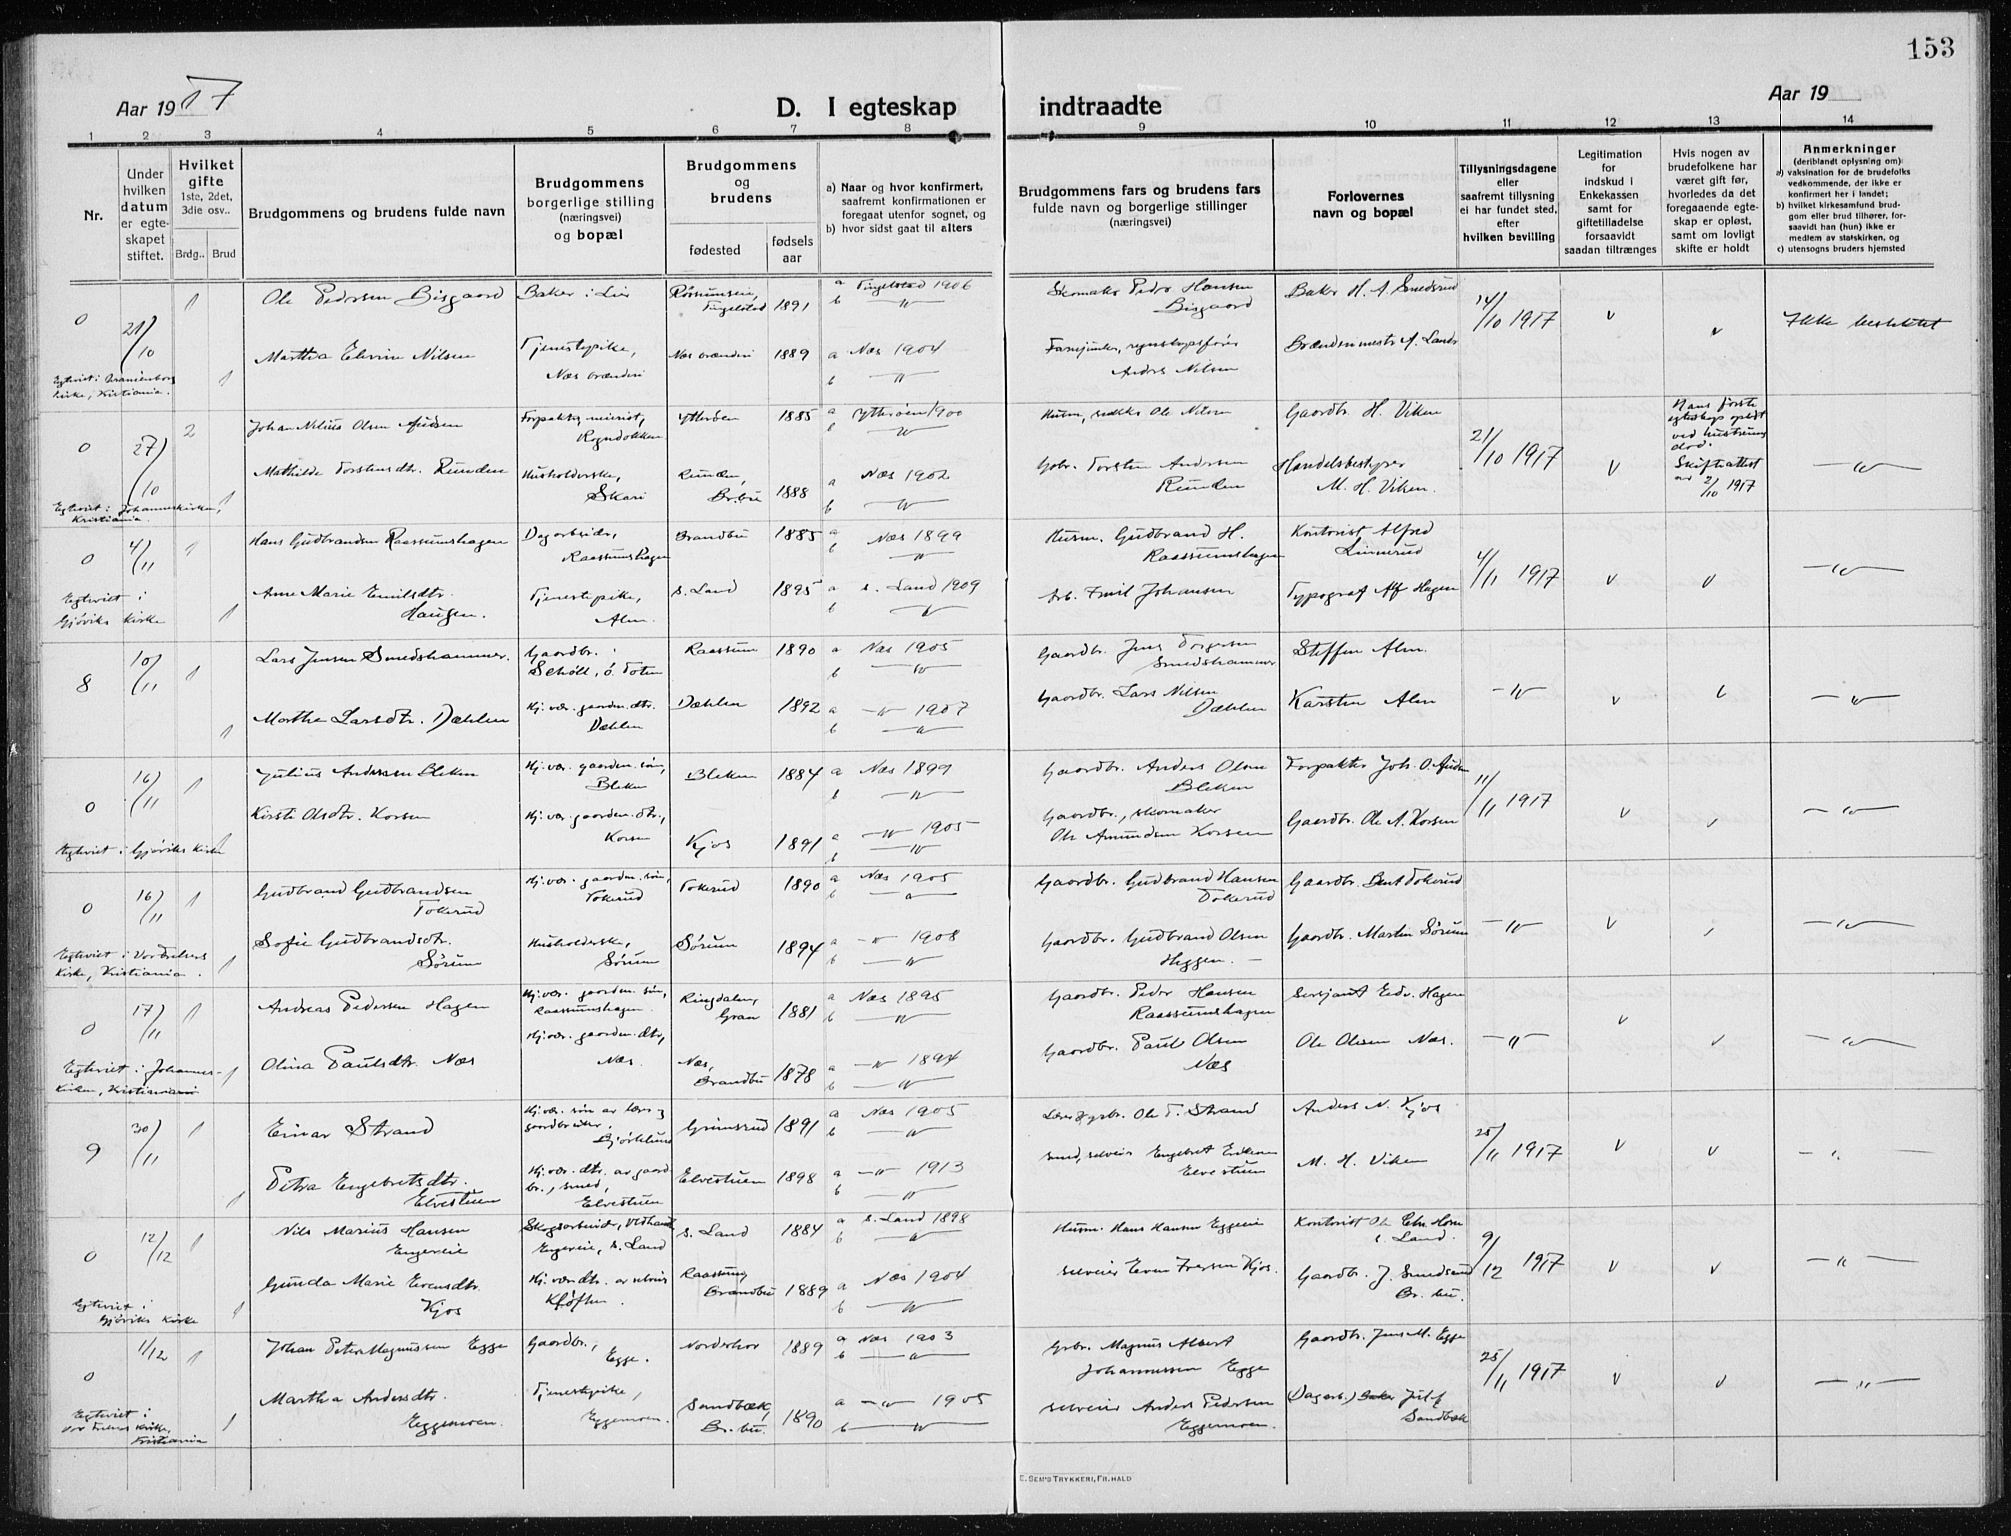 153
Aar 1917
D. I egteskap indtraadte
Aar 19
1 2 3 4 5 6 7 8 9 10 11 12 13 14
Nr.
Under hvilken datum er egteskapet stiftet.
Hvilket gifte 1ste, 2det, 3die osv..
Brdg.. Brud
Brudgommens og brudens fulde navn
Brudgommens borgerlige stilling (næringsvei) og bopæl
Brudgommens og brudens
fødested
fødsels aar
a) Naar og hvor konfirmert, saafremt konfirmationen er foregaat utenfor sognet, og
b) hvor sidst gaat til alters
Brudgommens fars og brudens fars fulde navn og borgerlige stillinger (næringsvei)
Forlovernes navn og bopæl
Tillysningsdagene eller saafremt tillysning ei har fundet sted, efter hvilken bevilling
Legitimation for indskud i Enkekassen samt for giftetilladelse forsaavidt saadan tiltrænges
Hvis nogen av brudefolkene har været gift før, hvorledes da det foregaaende egteskap er opløst, samt om lovligt skifte er holdt
Anmerkninger (deriblandt oplysning om):
a) vaksination for de brudefolks vedkommende, der ikke er konfirmert her i landet;
b) hvilket kirkesamfund brudgom eller brud tilhører, forsaavidt han (hun) ikke er medlem av statskirken, og
c) utensogns bruders hjemsted
0 21/10 1 Ole Pedersen Bisgaard Baker i Lier Tingelstad 1891 a Tingelstad 1906 b —"— Skomaker Peder Hansen Bisgaard Baker H. A. Smedsrud 14/10 1917 v v Ikke beskiktet
1 Martha Elvine Nilsen Tjenestepike, Næs brænderi Næs brænderi 1889 a Næs 1904 b —"— Anders Nilsen
Egteviet i Uranienborg kirke, Kristiania.
0 27/10 2 Johan Nilius Olsen Audsen Rogndokken Ytterøen 1885 a Ytterøen 1900 b —"— Ole Nilsen Gaardbr. H. Viken 21/10 1917 v Hans første egteskap opløst ved hustruens død. Skifteattest av 2/10 1917 —"—
1 Mathilde Torstensdtr. Runden Husholderske, Skari Runden, Br.bu 1888 a Næs 1902 b —"— Gbr. Torsten Andersen Runden Handelsbestyrer M. H. Viken.
Egteviet i Johanneskirken, Kristiania.
0 4/11 1 Hans Gudbrandsen Raassumshagen Dagarbeider, Raassumshagen Brandbu 1885 a Næs 1899 b —"— Husm. Gudbrand H. Raassumshagen Kontorist Alfred Linnerud 4/11 1917 v v —"—
1 Anne Marie Emilsdtr. Haugen. Tjenestepike, Alm. s. Land 1895 a s. Land 1909 b —"— Arb. Emil Johansen Typograf Alf Hagen
Egteviet i Gjøviks kirke
8 10/11 1 Lars Jensen Smedshammer. Gaardbr. i Schøll, ø. Toten Raassum 1890 a Næs 1905 b —"— Gaardbr. Jens Torgersen Smedshammer Steffen Alm. —"— v v —"—
1 Marthe Larsdtr. Dæhlen Hj. vær. gaardm. dtr. Dæhlen Dæhlen 1892 a —"— 1907 b —"— Gaardbr. Lars Nilsen Dæhlen Karsten Alm
0 16/11 1 Julius Andersen Bleken Hj. vær. gaardm. søn, Bleken Bleken 1884 a Næs 1899 b —"— Gaardbr. Anders Olsen Bleken Forpakter Joh. O. Audsen 11/11 1917 v v —"—
1 Kirsti Olsdtr. Korsen Hj. vær. gaardm. dtr., Korsen Kjos 1891 a —"— 1905 b —"— Gaardbr., skomaker Ole Amundsen Korsen Gaardbr. Ole A. Korsen
Egteviet i Gjøviks kirke
0 16/11 1 Gudbrand Gudbrandsen Tokerud Hj. vær. gaardm. søn, Tokerud Tokerud 1890 a Næs 1905 b —"— Gaardbr. Gudbrand Hansen Tokerud Gaardbr. Bent Tokerud —"— v —"—
1 Sofie Gudbrandsdtr. Sørum Husholderske, Sørum Sørum 1894 a —"— 1908 b —"— Gaardbr. Gudbrand Olsen Heggen. — Gaardbr. Martin Sørum
Egteviet i Vor Frelsers Kirke, Kristiania.
0 17/11 1 Andreas Pedersen Hagen Hj. vær. gaardm. søn, Raassumshagen. Ringdalen, Gran 1881 a Næs 1895 b —"— Gaardbr. Peder Hansen Raassumshagen Sersjant Edv. Hagen —"— v v —"—
1 Olina Paulsdtr. Næs Hj. vær. gaardm. dtr, Næs. Næs, Brandbu 1878 a —"— 1894 b —"— Gaardbr. Paul Olsen Næs Ole Olsen Næs.
Egteviet i Johanneskirken, Kristiania
9 30/11 1 Einar Strand Hj. vær. søn av lærer og gaardbruker, Bjørklund Grinsrud 1891 a Næs 1905 b —"— Ole T. Strand Anders N. Kjos 25/11 1917 v v —"—
1 Petra Engebretsdtr. Elvestuen Hj. vær. dtr. av gaardbr., smed, Elvestuen Elvestuen 1898 a —"— 1913 b —"— Smed, selveier Engebret Eriksen Elvestuen M. H. Viken
0 12/12 1 Nils Marius Hansen Engereie Skogsarbeider, Engereie, s. Land s. Land 1884 a s. Land 1898 b —"— Husm. Hans Hansen Eggeeie Kontorist Ole Chr. Horn s. Land. 9/12 1917 v v —"—
1 Gunda Marie Evensdtr. Kjos Hj. vær. dtr. av selveier Kløften. Raassum, Brandbu 1889 a Næs 1904 b —"— Selveier Even Iversen Kjos. Gaardbr. J. Smedsrud Br.bu.
Egteviet i Gjøviks kirke
0 1/12 1 Johan Peter Magnussen Egge Gaardbr., Egge. Norderhov 1889 a Næs 1903 b —"— Grbr. Magnus Albert Johannessen Egge Gaardbr. Jens M. Egge 25/11 1917 v v —"—
1 Martha Andersdtr. Eggemoen. Tjenestepike, Eggemoen. Sandbæk, Br.bu. 1890 a —"— 1905 b —"— Selveier Anders Pedersen Eggemoen. (Dagarb.) Sandbæk
Egteviet i Vor Frelsers Kirke, Kristiania
E. SEM'S TRYKKERI, FR.HALD